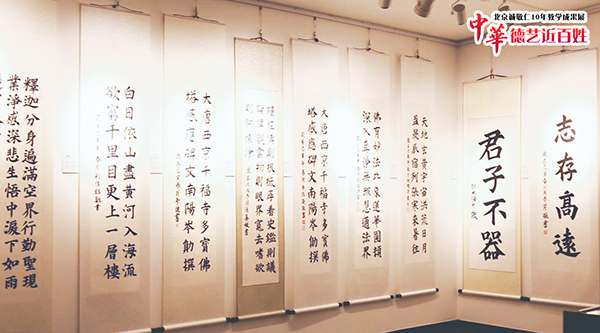 北京诚敬仁10年教学成果展
中華德艺近百姓
釋迦分身遍滿空界行勤聖現
業淨感深悲生悟中淚下如雨
白日依山盡黄河入海流
欲窮千里目更上一層樓
大唐西京千福寺多寶佛
塔感應碑文南陽岑勛撰
大唐西京千福寺多寶佛
塔感應碑文南陽岑勛撰
佛有妙法比象蓮華圓頓
深入真淨無瑕慧通法界
天地玄黃宇宙洪荒日月
盈昃辰宿列張寒來暑往
君子不器
志存高遠